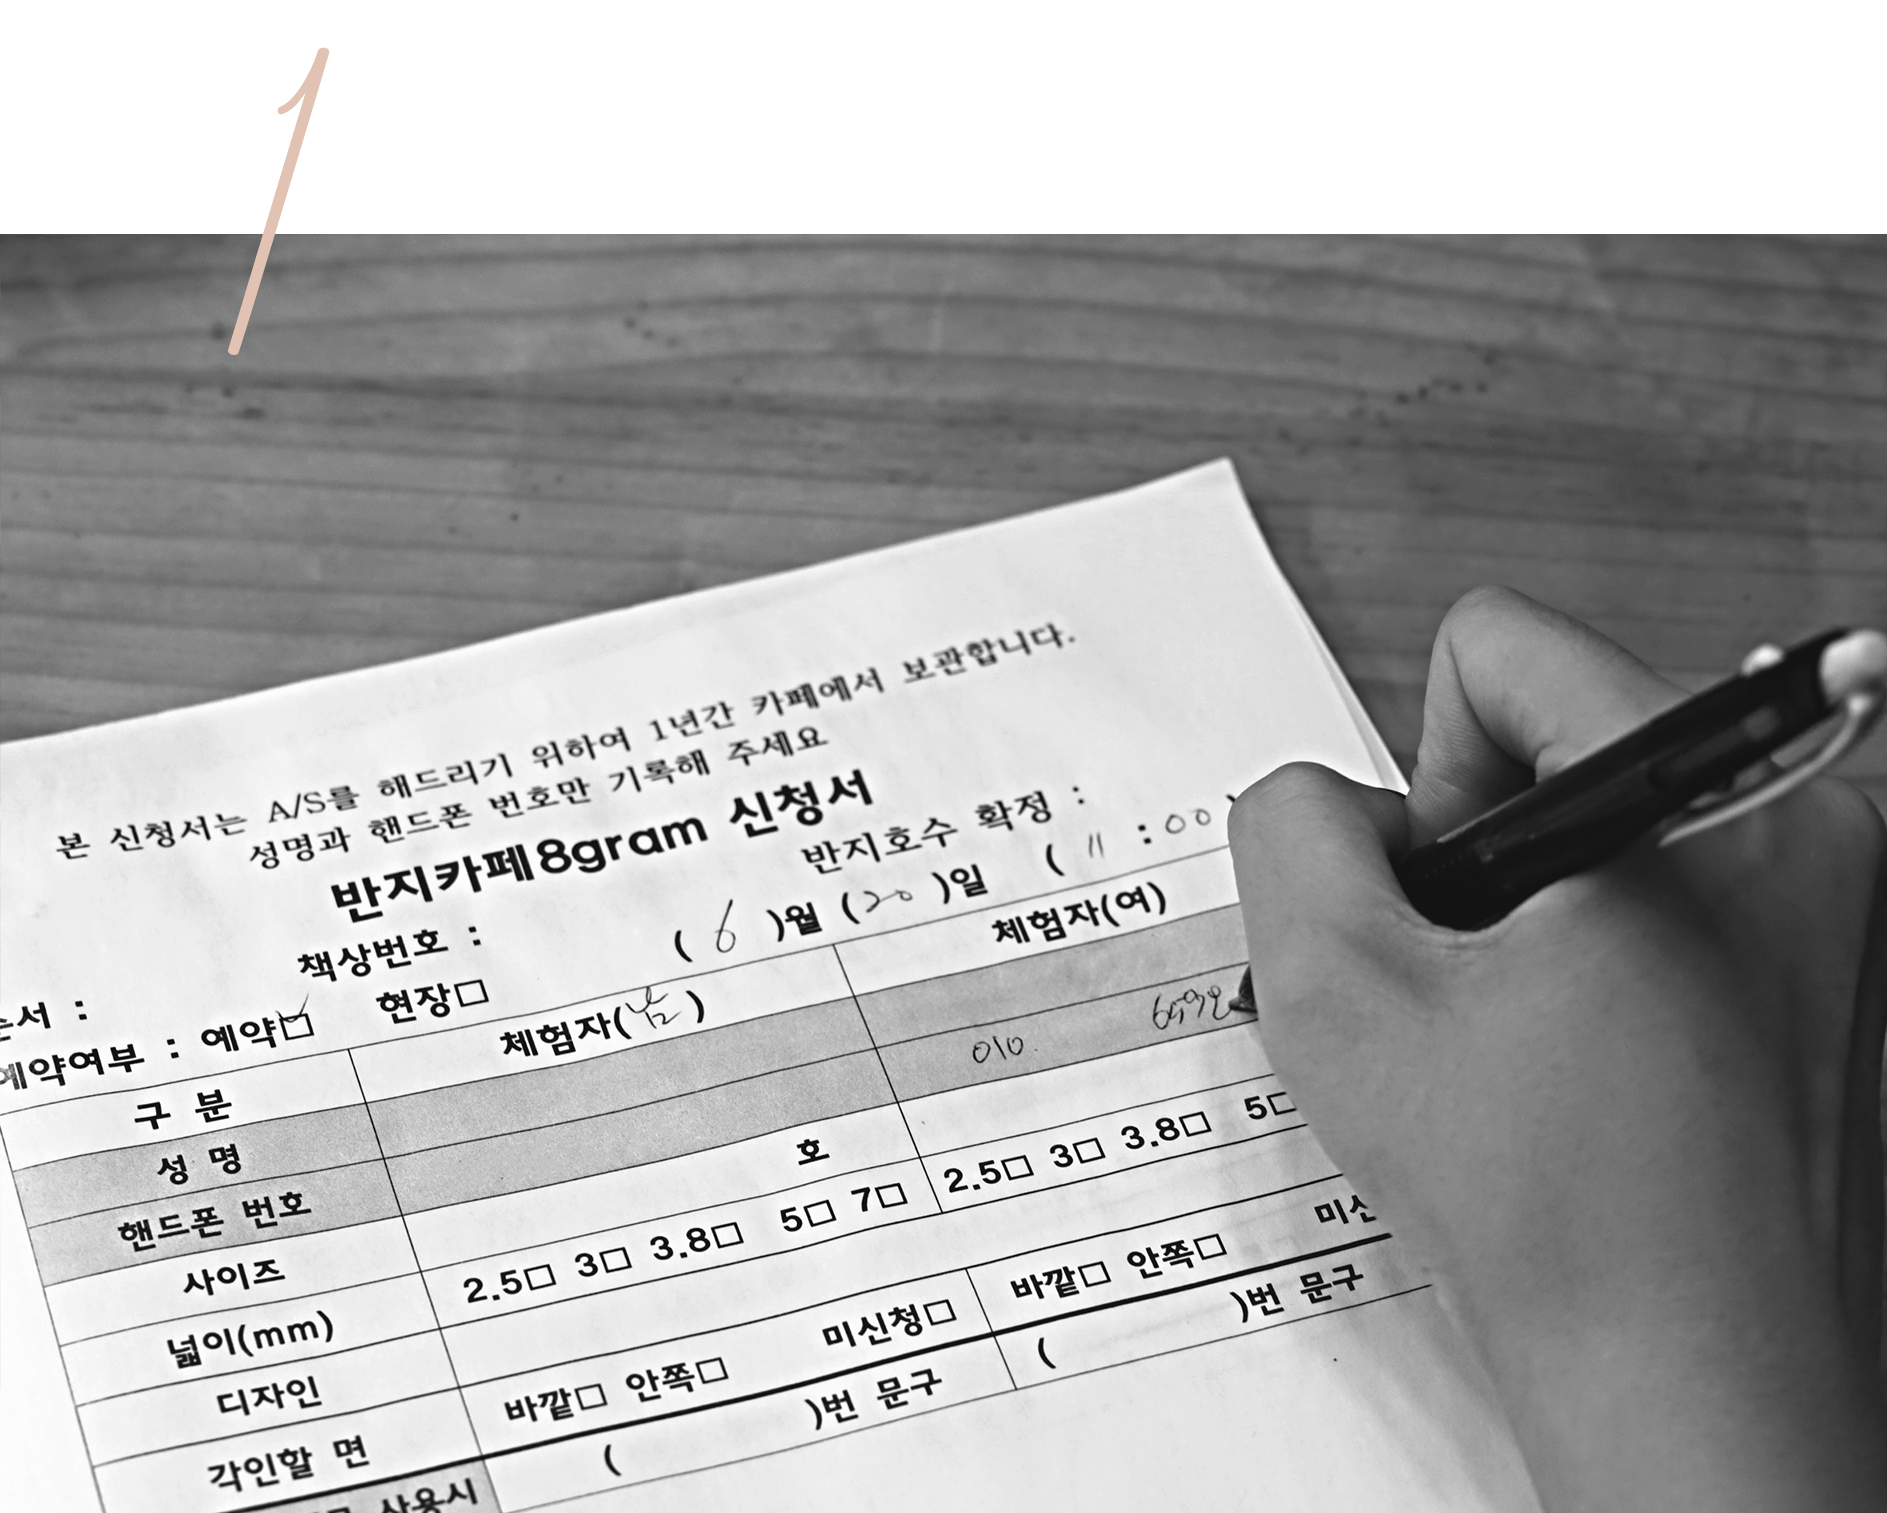 1
본 신청서는 A/S를 해드리기 위하여 1년간 카페에서 보관합니다.
성명과 핸드폰 번호만 기록해 주세요
반지카페8gram 신청서
반지호수 확정 :
책상번호 : ( 6 )월 (20 )일 ( 11 : 00 )
서 :
예약여부 : 예약☑ 현장□
구 분 체험자( ) 체험자(여)
성 명
핸드폰 번호 010.
사이즈 호
넓이(mm) 2.5□ 3□ 3.8□ 5□ 7□ 2.5□ 3□ 3.8□ 5□
디자인
각인할 면 바깥□ 안쪽□ 미신청□ 바깥□ 안쪽□ 미신
( )번 문구 ( )번 문구
사용시